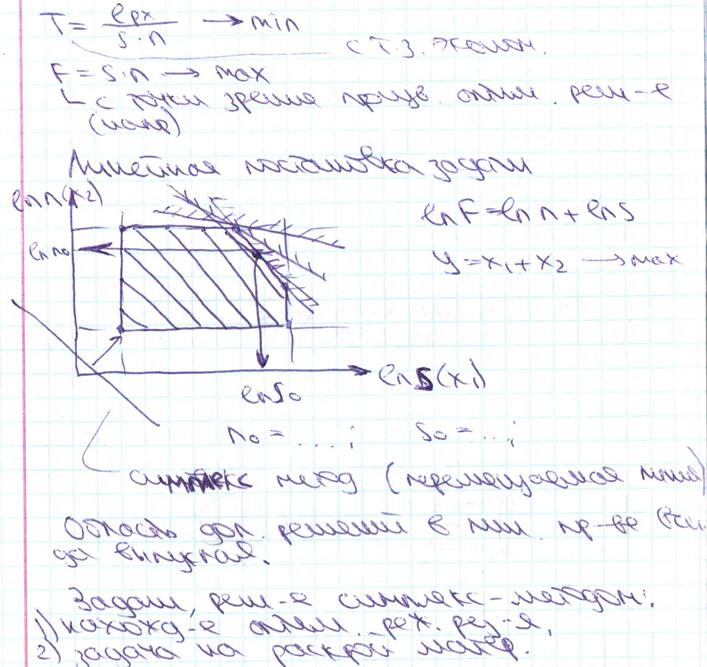 T = ℓрх / s·n → min
с т.з. эконом.
F = s·n → max
с точки зрения произв. оптим. реш-е
Линейная постановка задачи
ln n(x2)
ln F = ln n + ln s
ln n0
y = x1 + x2 → max
ln S0
ln S(x1)
n0 = ....; s0 = ...;
симплекс метод (перемещаемая линия)
Область доп. решений в лин. пр-ве
да выпуклая.
Задачи, реш-е симплекс-методом:
1) нахожд-е оптим. реж. рез-я,
2) задача на раскрой матер.